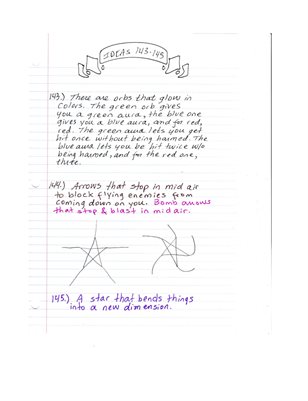 IDEAS 143-145
143.) There are orbs that glow in
colors. The green orb gives
you a green aura, the blue one
gives you a blue aura, and for red,
red. The green aura lets you get
hit once without being harmed. The
blue aura lets you be hit twice w/o
being harmed, and for the red one,
thrice.
144.) Arrows that stop in mid air
to block flying enemies from
coming down on you. Bomb arrows
that stop & blast in mid air.
145.) A star that bends things
into a new dimension.